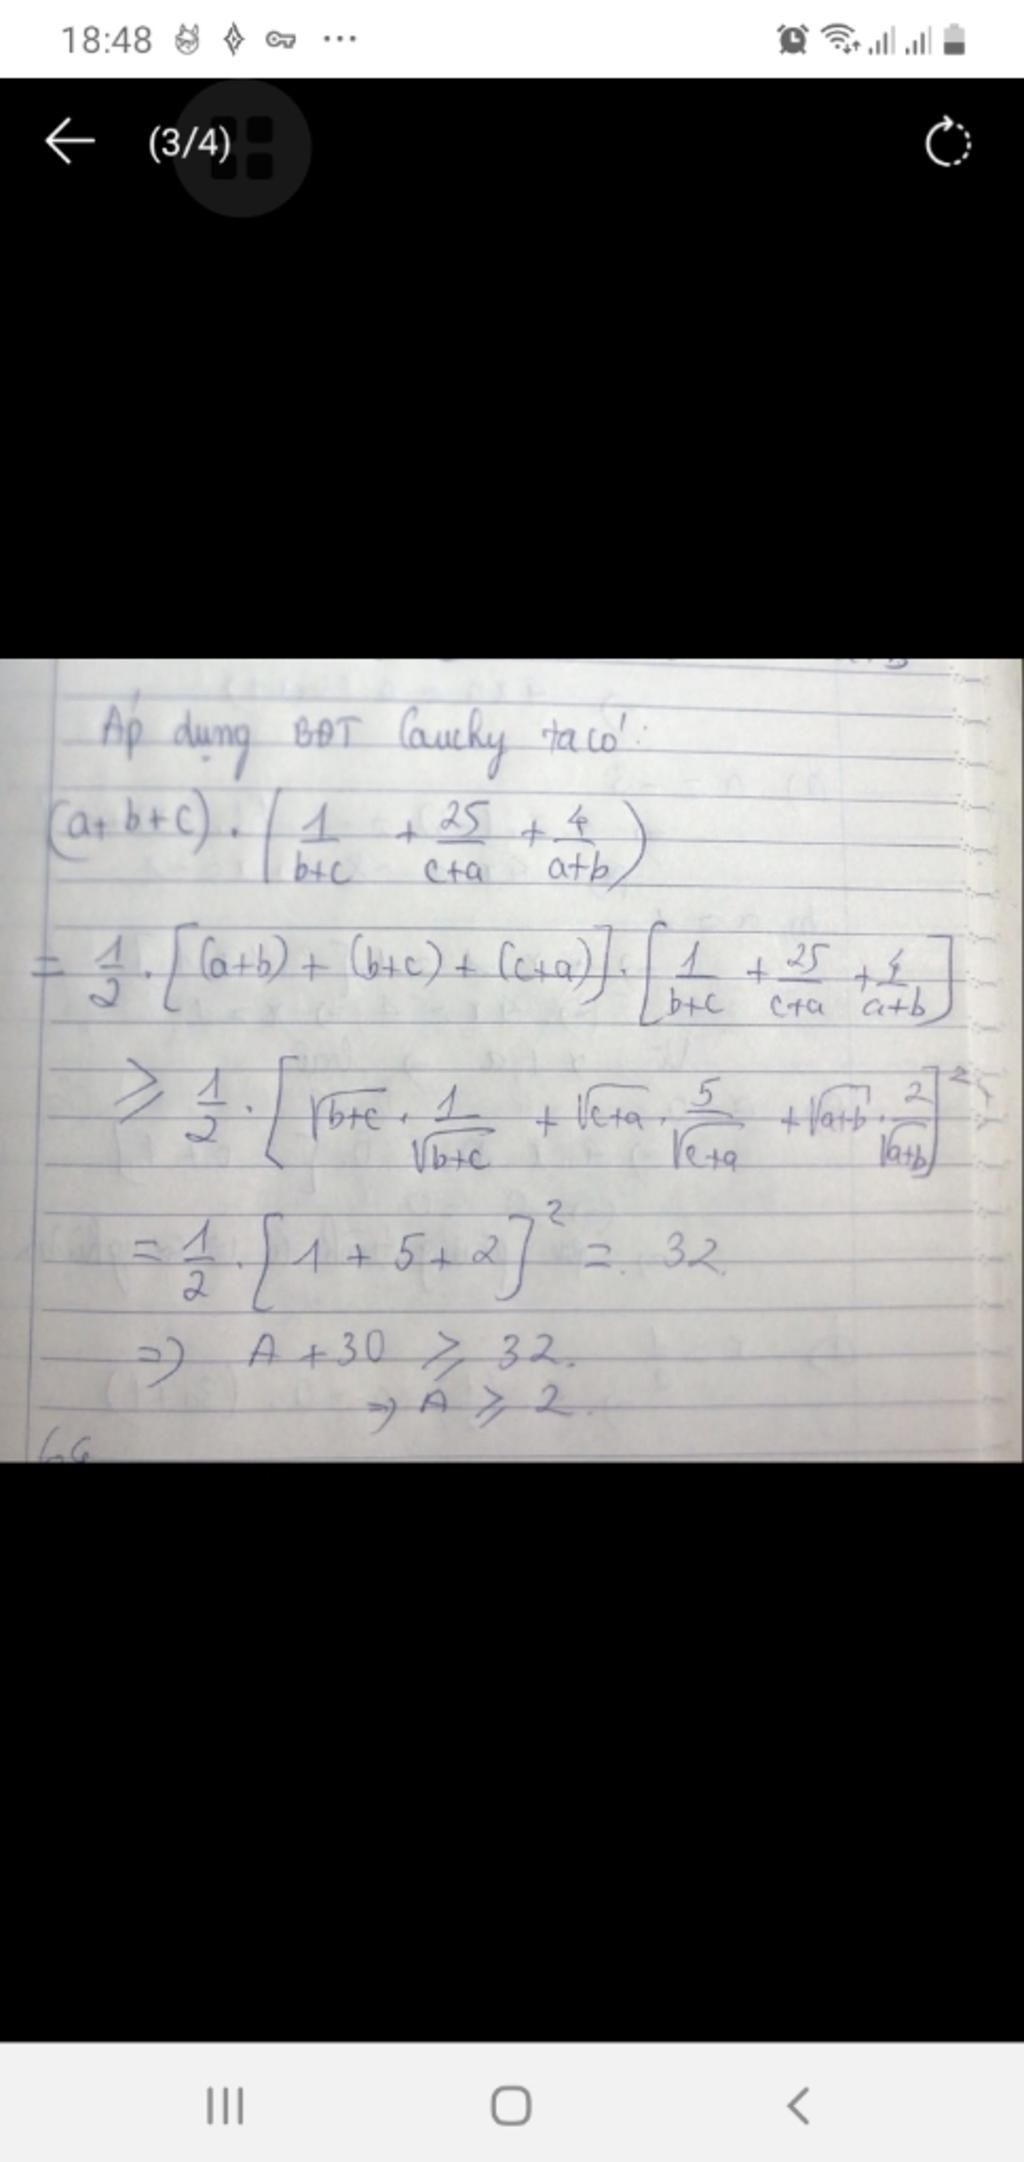 18:48
(3/4)
Áp dụng BĐT Cauchy ta có:
(a+b+c) . (1/(b+c) + 25/(c+a) + 4/(a+b))
= 1/2 . [(a+b) + (b+c) + (c+a)] . [1/(b+c) + 25/(c+a) + 4/(a+b)]
≥ 1/2 . [√(b+c) . 1/√(b+c) + √(c+a) . 5/√(c+a) + √(a+b) . 2/√(a+b)]²
= 1/2 . [1 + 5 + 2]² = 32
=> A + 30 ≥ 32.
=> A ≥ 2.